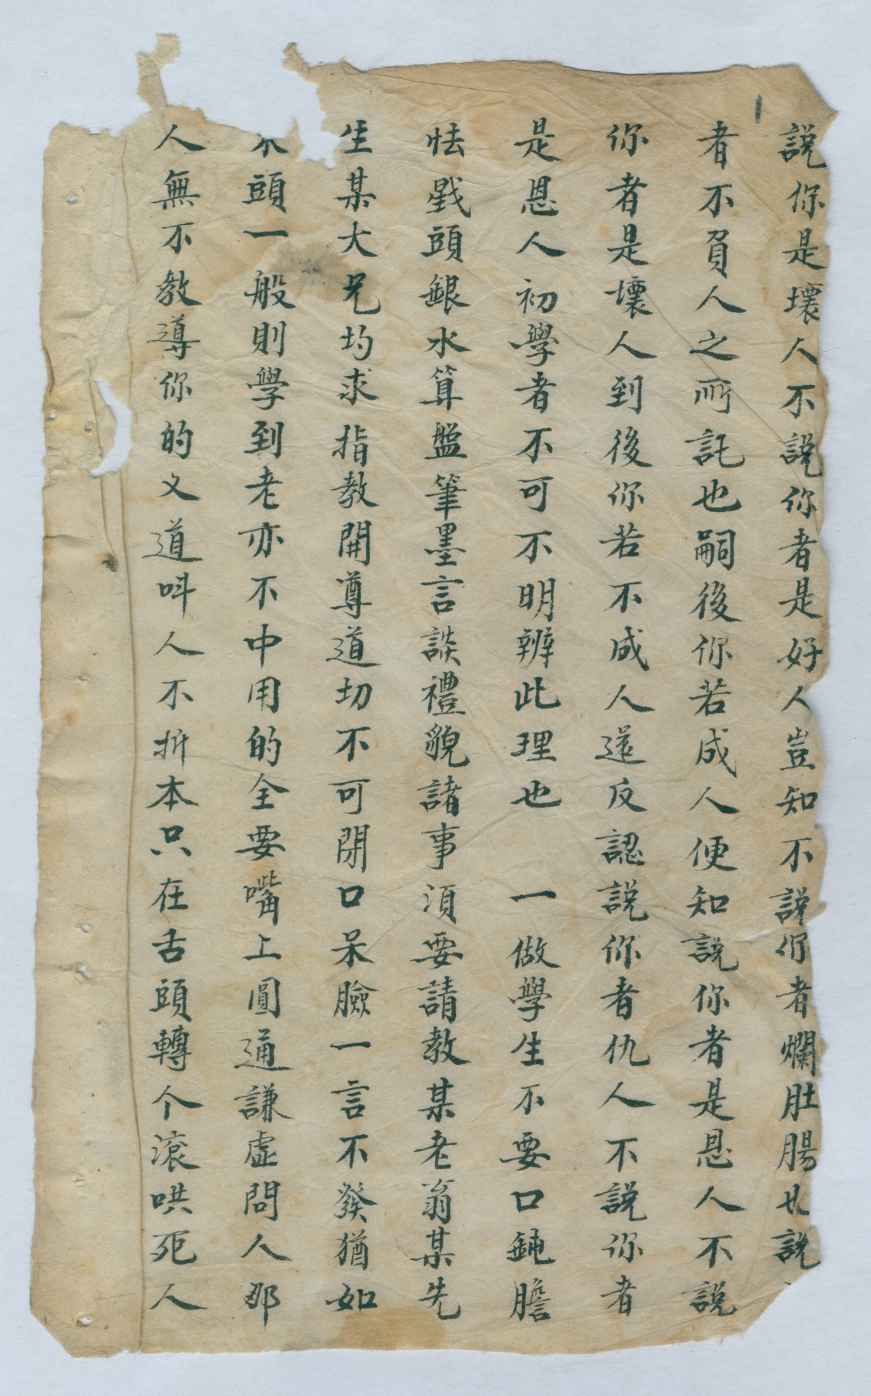 說你是壞人不說你者是好人豈知不說你者爛肚腸也說
者不負人之所託也嗣後你若成人便知說你者是恩人不說
你者是壞人到後你若不成人還反認說你者仇人不說你者
是恩人初學者不可不明辨此理也　一做學生不要口鈍膽
怯戥頭銀水算盤筆墨言談禮貌諸事須要請教某老翁某先
生某大兄均求指教開導道切不可閉口呆臉一言不發猶如
木頭一般則學到老亦不中用的全要嘴上圓通謙虛問人那
人無不教導你的文道呌人不折本只在舌頭轉个滾哄死人